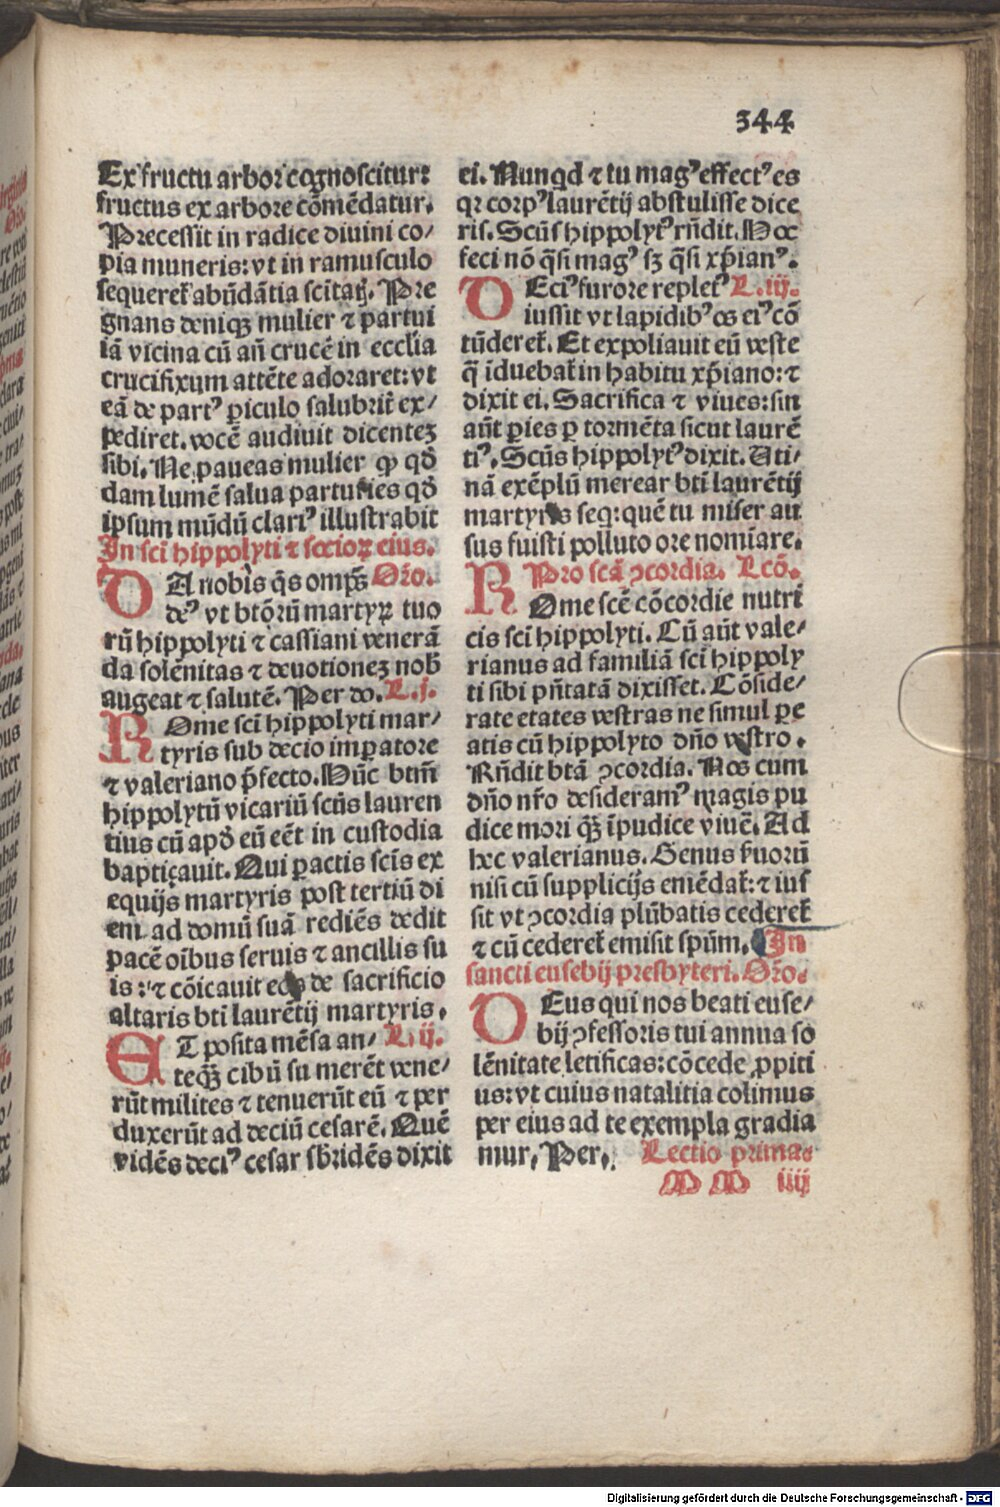 344
Ex fructu arbor cognoscitur:
fructus ex arbore cõmẽdatur.
Precessit in radice diuini co/
pia muneris: vt in ramusculo
sequeret᷒ abũdãtia scĩtatꝭ. Pre
gnans deniqꝫ mulier ⁊ partui
iã vicina cũ añ crucẽ in ecclĩa
crucifixum attẽte adoraret: vt
eã de partꝰ ꝑiculo salubriť ex/
pediret. vocẽ audiuit dicentez
sibi. Ne paueas mulier qꝛ qđ
dam lumẽ salua parturies qđ
ipsum mũdũ clariꝰ illustrabit
In scĩ hippolyti ⁊ socioꝝ eius.
DA nobis q̃s omp̃s Or̃o.
deꝰ vt btõrũ martyꝝ tuo
rũ hippolyti ⁊ cassiani venerã
da solẽnitas ⁊ deuotionez nob̃
augeat ⁊ salutẽ. Per do. L. j.
ROme scĩ hippolyti mar/
tyris sub decio imꝑatore
⁊ valeriano p̃fecto. Hũc btm̃
hippolytũ vicariũ scũs lauren
tius cũ apđ eũ eẽt in custodia
baptiçauit. Qui ꝑactis scĩs ex
equijs martyris post tertiũ di
em ad domũ suã rediẽs dedit
pacẽ oĩbus seruis ⁊ ancillis su
is: ⁊ cõicauit eos de sacrificio
altaris bti laurẽtij martyris.
ET posita mẽsa an/ L. ij.
teqꝫ cibũ sumerẽt vene/
rũt milites ⁊ tenuerũt eũ ⁊ per
duxerũt ad deciũ cesarẽ. Quẽ
vidẽs deciꝰ cesar sb̃ridẽs dixit
ei. Nunqd ⁊ tu magꝰ effectꝰ es
qꝛ corpꝰ laurẽtij abstulisse dice
ris. Scũs hippolytꝰ rñdit. Hoc
feci nõ q̃si magꝰ sꝫ q̃si xp̃ianꝰ.
DEciꝰ furore repletꝰ L. iij.
iussit vt lapidibꝰ os eiꝰ cõ
tũderet᷒. Et expoliauit eũ veste
q̃ ĩduebat᷒ in habitu xp̃iano: ⁊
dixit ei. Sacrifica ⁊ viues: sin
aũt ꝑies ꝑ tormẽta sicut laurẽ
tiꝰ. Scũs hippolytꝰ dixit. Uti/
nã exẽplũ merear bti laurẽtij
martyris seq: quẽ tu miser au
sus fuisti polluto ore nomĩare.
Pro scã ꝯcordia. Lcõ.
ROme scẽ cõcordie nutri
cis scĩ hippolyti. Cũ aũt vale/
rianus ad familiã scĩ hippoly
ti sibi pñtatã dixisset. Cõside/
rate etates vestras ne simul ꝑe
atis cũ hippolyto dño vestro.
Rñdit btã ꝯcordia. Nos cum
dño nr̃o desideramꝰ magis pu
dice mori qꝫ ĩpudice viuẽ. Ad
hec valerianus. Genus ẜuorũ
nisi cũ supplicijs emẽdat᷒: ⁊ ius
sit vt ꝯcordia plũbatis cederet᷒
⁊ cũ cederet᷒ emisit spũm. In
sancti eusebij presbyteri. Or̃o.
DEus qui nos beati euse/
bij ꝯfessoris tui annua so
lẽnitate letificas: cõcede ꝓpiti
us: vt cuius natalitia colimus
per eius ad te exempla gradia
mur. Per. Lectio prima.
M M iiij
Digitalisierung gefördert durch die Deutsche Forschungsgemeinschaft - DFG